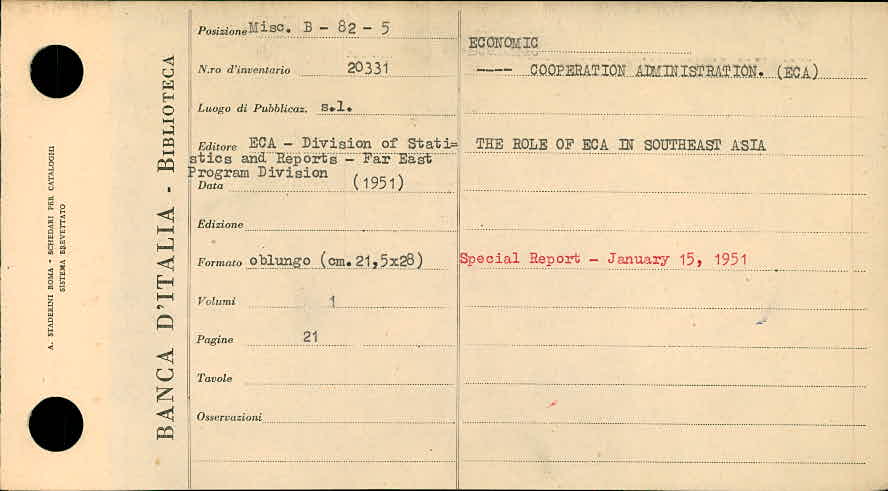 A. STADERINI ROMA - SCHEDARI PER CATALOGHI
SISTEMA BREVETTATO
BANCA D'ITALIA - BIBLIOTECA
Posizione Misc. B - 82 - 5
N.ro d'inventario 20331
Luogo di Pubblicaz. s.l.
Editore ECA - Division of Stati=
stics and Reports - Far East
Program Division
Data (1951)
Edizione
Formato oblungo (cm.21,5x28)
Volumi 1
Pagine 21
Tavole
Osservazioni
ECONOMIC
---- COOPERATION ADMINISTRATION. (ECA)
THE ROLE OF ECA IN SOUTHEAST ASIA
Special Report - January 15, 1951